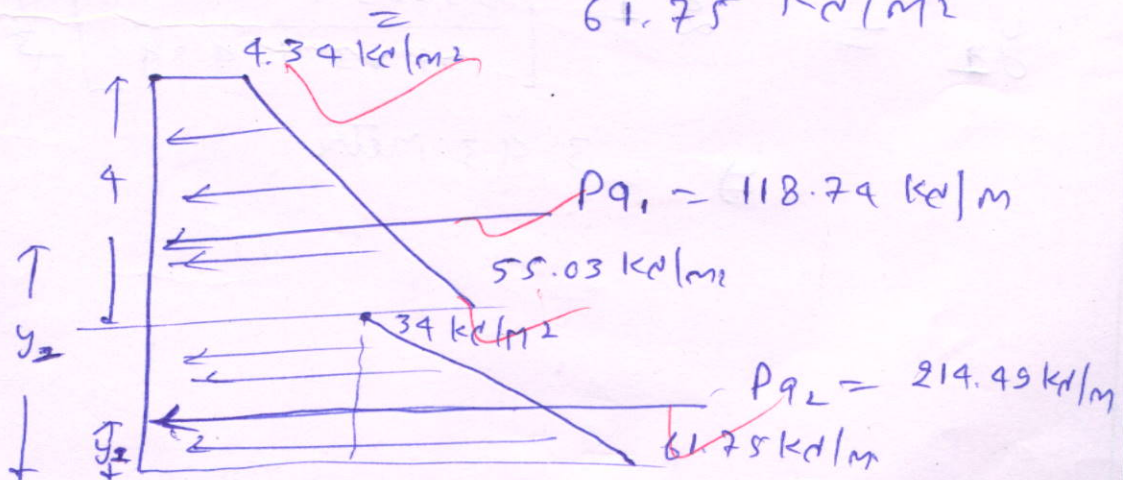 = 61.75 kN/m2
4.34 kN/m2
4
Pa1 = 118.74 kN/m
55.03 kN/m2
y2
34 kN/m2
Pa2 = 214.49 kN/m
61.75 kN/m